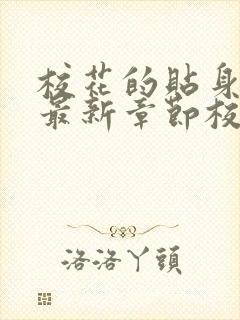 校花的貼身
最新章節校
洛洛丫頭